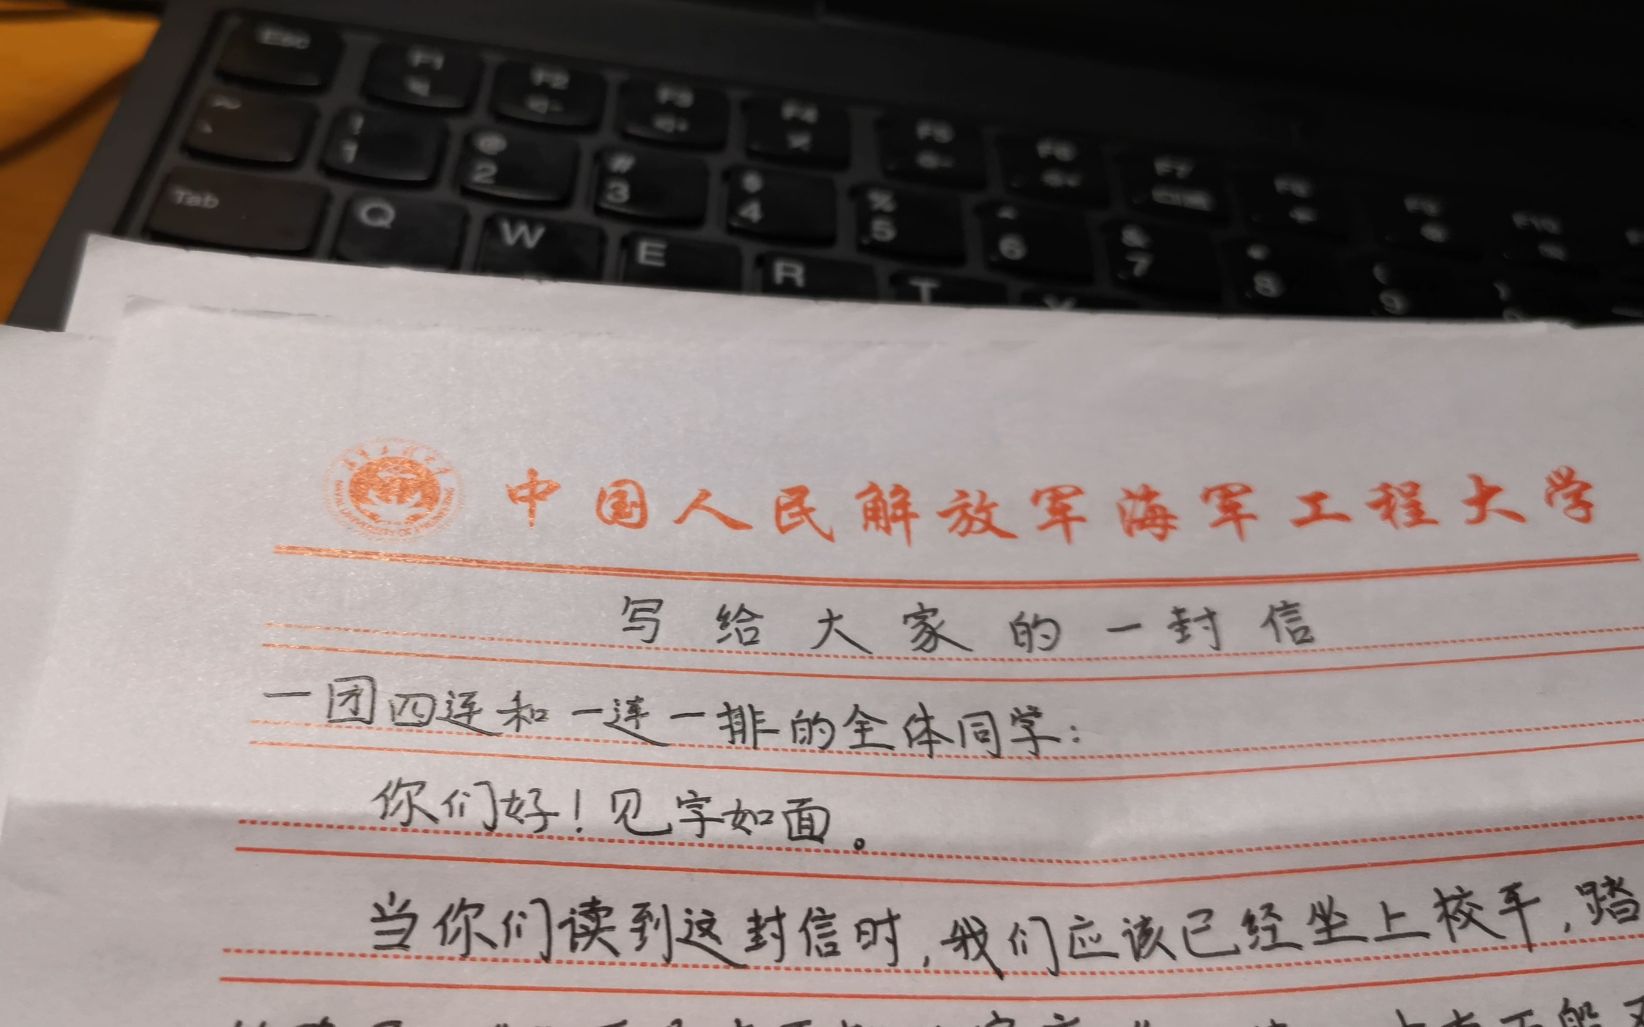 Esc F1 F2 F3 F4 F5 F6 F7 F8 F9 F10
~ ` ! 1 @ 2 # 3 $ 4 % 5 ^ 6 & 7 * 8 ( 9 )
Tab Q W E R T Y
中国人民解放军海军工程大学
写给大家的一封信
一团四连和一连一排的全体同学:
你们好!见字如面。
当你们读到这封信时,我们应该已经坐上校车,踏